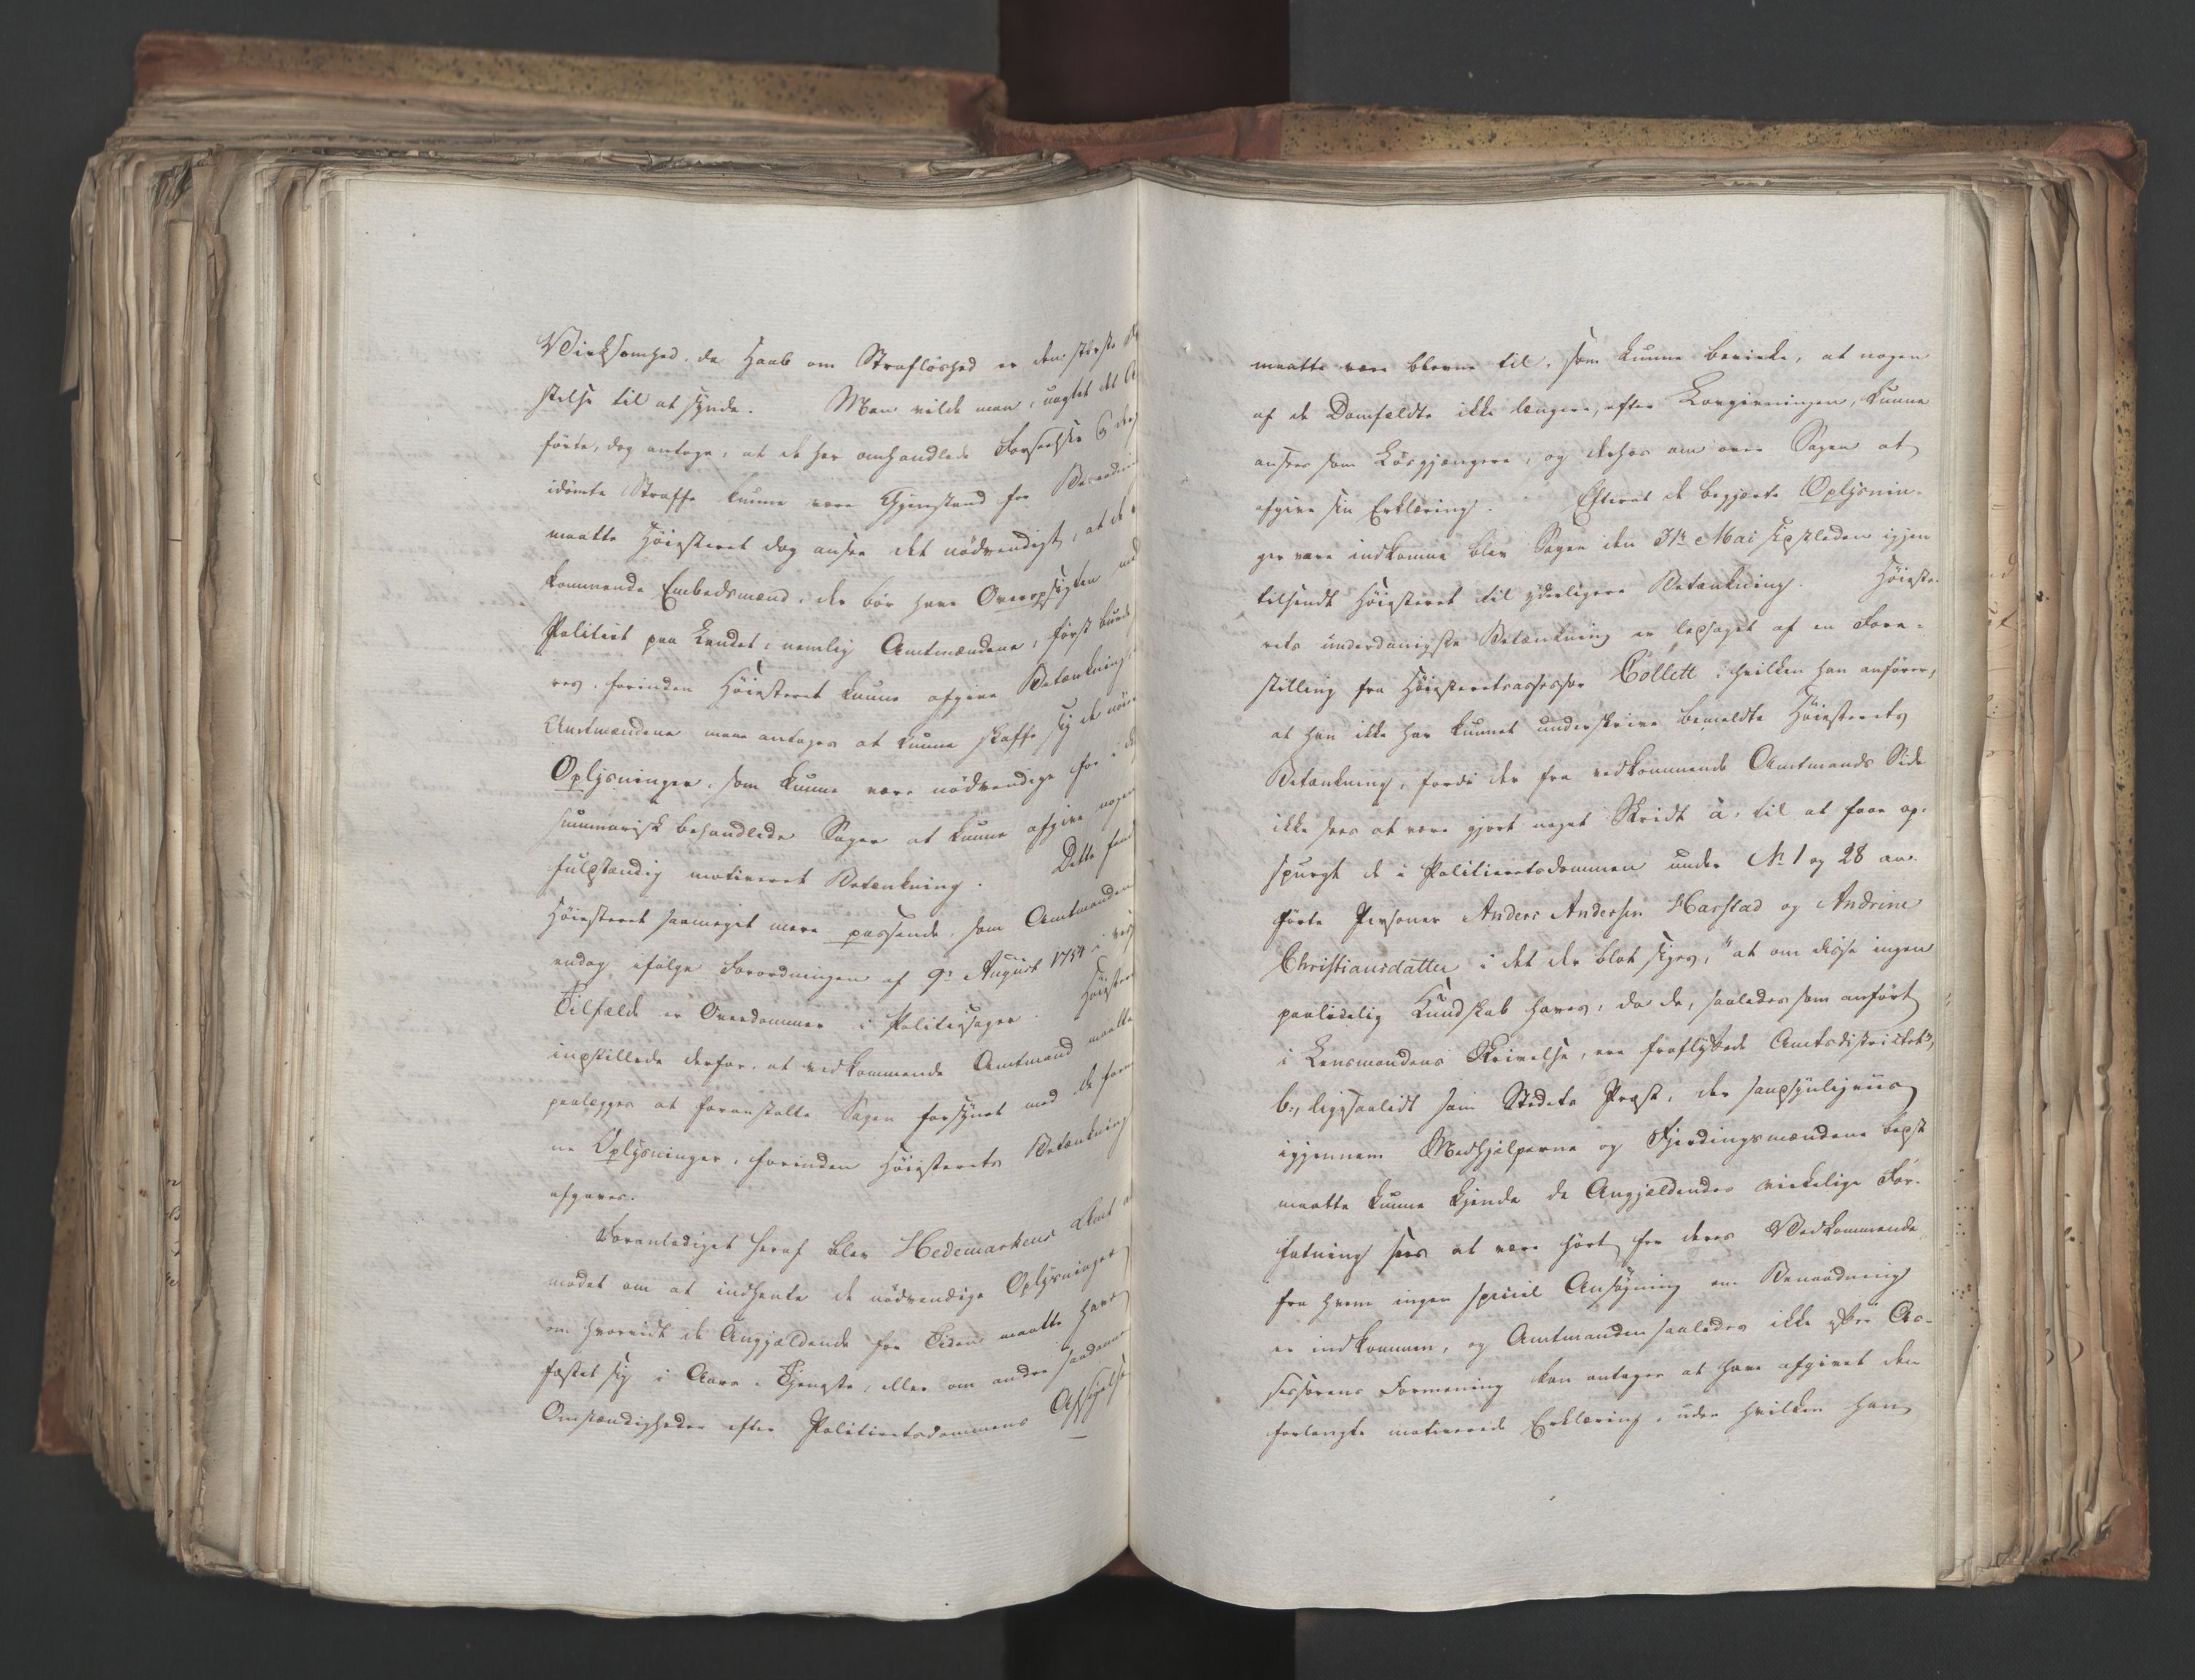 Virksomhed, da Haab om Strafløshed er den største
stelse til at synde. Men vilde man, uagtet det
førte, dog antage, at de her omhandlede Forseelser &
idømte Straffe kunne være Gjenstand for
maatte Høiesteret dog ansee det nødvendigt, at de
kommende Embedsmænd, der bør have Overopsigten med
Politiet paa Landet, nemlig Amtmændene, først burde
res, forinden Høiesteret kunne afgive Betænkning,
Amtmændene maae antages at kunne skaffe sig de
Oplysninger, som kunne være nødvendige for i
summarisk behandlede Sager at kunne afgive nogen
fulstændig motiveret Betænkning. Dette fandt
Høiesteret saameget mere passende, som Amtmanden
endog ifølge Forordningen af 9de August 1754 i
Tilfælde er Overdommer i Politiesager. Høiesteret
instillede derfor, at vedkommende Amtmand maatte
paalægges at foranstalte Sagen forsynet med de
ne Oplysninger, forinden Høiesterets Betænkning
afgaves.
Foranlediget heraf blev Hedemarkens Amt
modet om at indhente de nødvendige Oplysninger
om hvorvidt de Angjældende for Tiden maatte have
fæstet sig i Aars-Tjeneste, eller om andre saadanne
Omstændigheder efter Politieretsdommens Afsigelse
maatte være blevne til, som kunne bevirke, at nogen
af de Domfældte ikke længere, efter Lovgivningen, kunne
ansees som Løsgjængere, og derhos om over Sagen at
afgive sin Erklæring. Efterat de begjærte Oplysnin-
ger vare indkomne blev Sagen den 31te Mai sidstleden igjen
tilsendt Høiesteret til yderligere Betænkning. Høieste-
rets underdanigste Betænkning er ledsaget af en Fore-
stilling fra Høiesteretsassessor Collett, i hvilken han anfører,
at han ikke har kunnet underskrive bemeldte Høiesterets
Betænkning, fordi der fra vedkommende Amtmands Side
ikke sees at være gjort noget Skridt a, til at faae op-
spurgt de i Politieretsdommen under No 1 og 28 an-
førte Personer Anders Andersen Harstad og Andrine
Christiansdatter i det der blot siges, "at om disse ingen
paalidelig Kundskab haves, da de, saaledes som anført
i Lensmandens Skrivelse, ere fraflyttede Amtsdistrictet",
b, ligesaalidt som Stedets Præst, der sandsynligviis
igjennem Medhjelperne og Fjerdingsmændene bedst
maatte kunne kjende de Angjældendes virkelige For-
fatning sees at være hørt for deres Vedkommende,
fra hvem ingen speciel Ansøgning om Benaadning
er indkommen, og Amtmanden saaledes ikke efter As-
sessorens Formening kan antages at have afgivet den
forlangte motiverede Erklæring, uden hvilken han